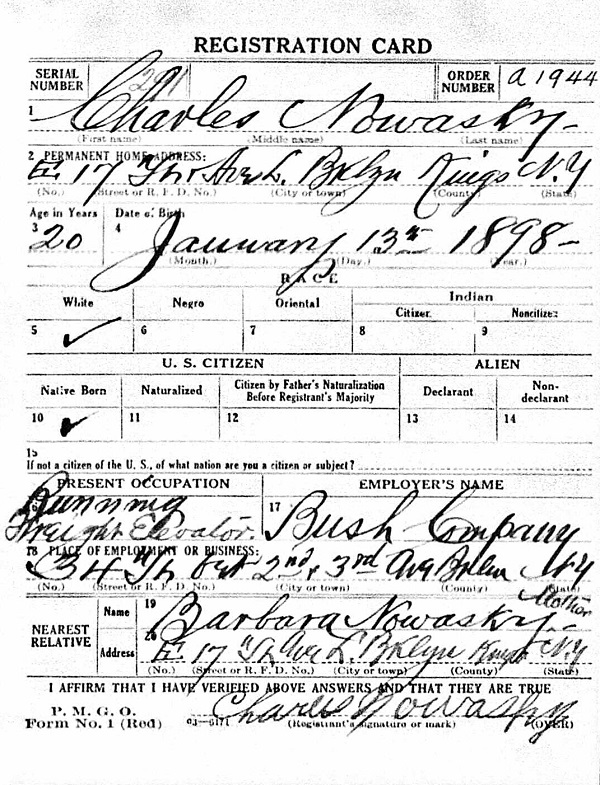 REGISTRATION CARD
SERIAL NUMBER 291 ORDER NUMBER a 1944
1 Charles Nowasky-
(First name) (Middle name) (Last name)
2 PERMANENT HOME ADDRESS:
E. 17 Th Ave L. Bklyn Kings N.Y
(No.) (Street or R. F. D. No.) (City or town) (County) (State)
Age in Years Date of Birth
3 20 4 January 13th 1898-
(Month.) (Day.) (Year.)
RACE
White Negro Oriental Indian
Citizen Noncitizen
5 ✓ 6 7 8 9
U. S. CITIZEN ALIEN
Native Born Naturalized Citizen by Father's Naturalization Before Registrant's Majority Declarant Non-declarant
10 ✓ 11 12 13 14
15
If not a citizen of the U. S., of what nation are you a citizen or subject?
PRESENT OCCUPATION EMPLOYER'S NAME
16 Running
Freight Elevator. 17 Bush Company
18 PLACE OF EMPLOYMENT OR BUSINESS:
34 Th bet 2nd & 3rd Ave Bklyn N.Y
(No.) (Street or R. F. D. No.) (City or town) (County) (State)
Mother
NEAREST RELATIVE Name 19 Barbara Nowasky-
Address 20 E. 17 Th Ave L. Bklyn Kings N.Y
(No.) (Street or R. F. D. No.) (City or town) (County) (State)
I AFFIRM THAT I HAVE VERIFIED ABOVE ANSWERS AND THAT THEY ARE TRUE
P. M. G. O.
Form No. 1 (Red) 03-6171 Charles Nowasky
(Registrant's signature or mark) (OVER)